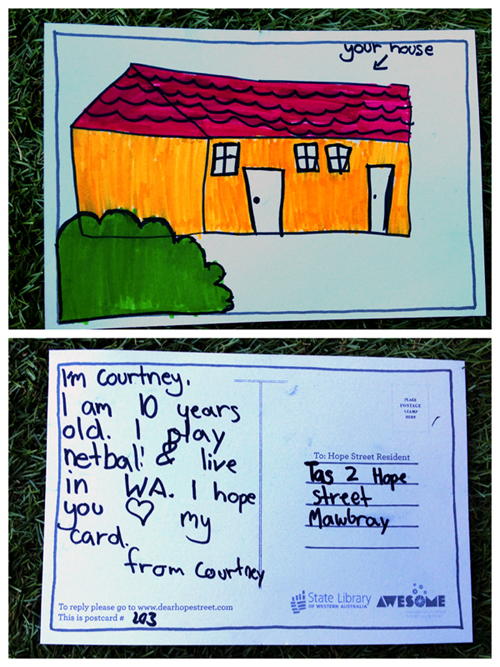 your house
I'm Courtney.
I am 10 years
old. I play
netball & live
in WA. I hope
you ♡ my
card.
from Courtney
PLACE
POSTAGE
STAMP
HERE
To: Hope Street Resident
Tas 2 Hope
street
Mawbray
To reply please go to www.dearhopestreet.com
This is postcard # 203
State Library
OF WESTERN AUSTRALIA
AWESOME